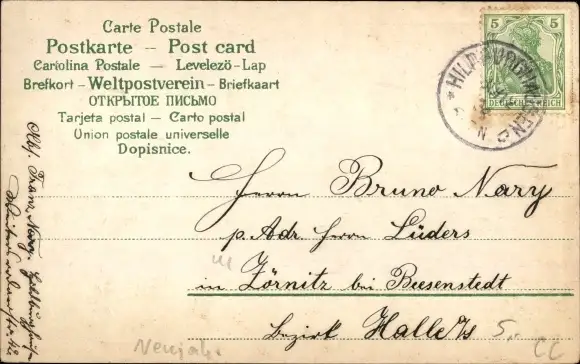 Carte Postale
Postkarte — Post card
Cartolina Postale — Levelező-Lap
Brefkort - Weltpostverein - Briefkaart
ОТКРЫТОЕ ПИСЬМО
Tarjeta postal — Carto postal
Union postale universelle
Dopisnice.
5 5
DEUTSCHES REICH
* HILDBURGHAUSEN
Herrn Bruno Nary
p. Adr. Herrn Lüders
in Zörnitz bei Beesenstedt
bezirk Halle a/s
Neujahr
5,
CC
Abs. Franz Nary,